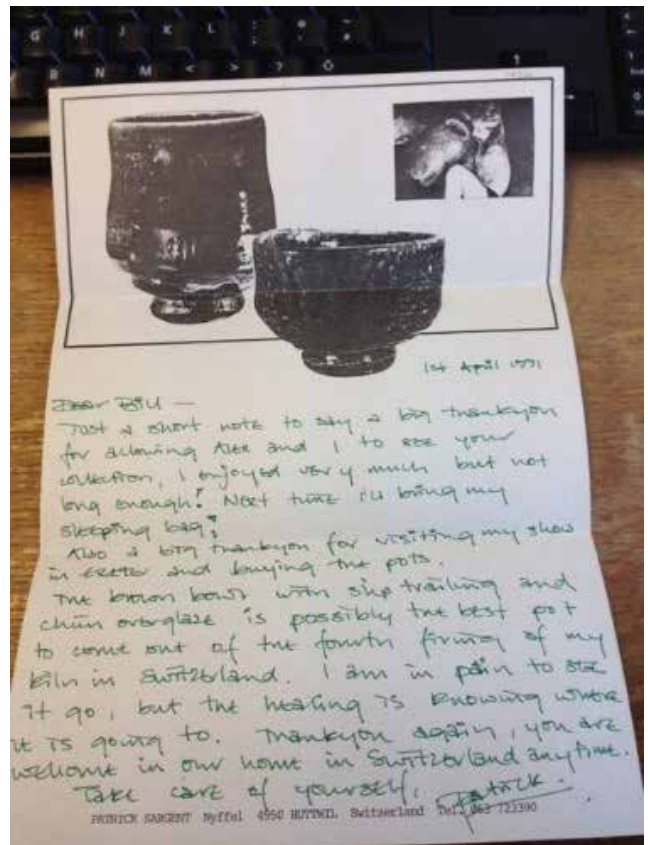 G H J K L
B N M < > ?
1st April 1991
Dear Bill —
Just a short note to say a big thankyou
for allowing Alex and I to see your
collection, I enjoyed very much but not
long enough! Next time I'll bring my
sleeping bag!
Also a big thankyou for visiting my show
in Exeter and buying the pots.
The brown bowl with slip trailing and
chün overglaze is possibly the best pot
to come out of the fourth firing of my
kiln in Switzerland. I am in pain to see
it go, but the healing is knowing where
it is going to. Thankyou again, you are
welcome in our home in Switzerland anytime.
Take care of yourself, Patrick.
PATRICK SARGENT Nyffel 4950 HUTTWIL Switzerland Tel. 063 723390